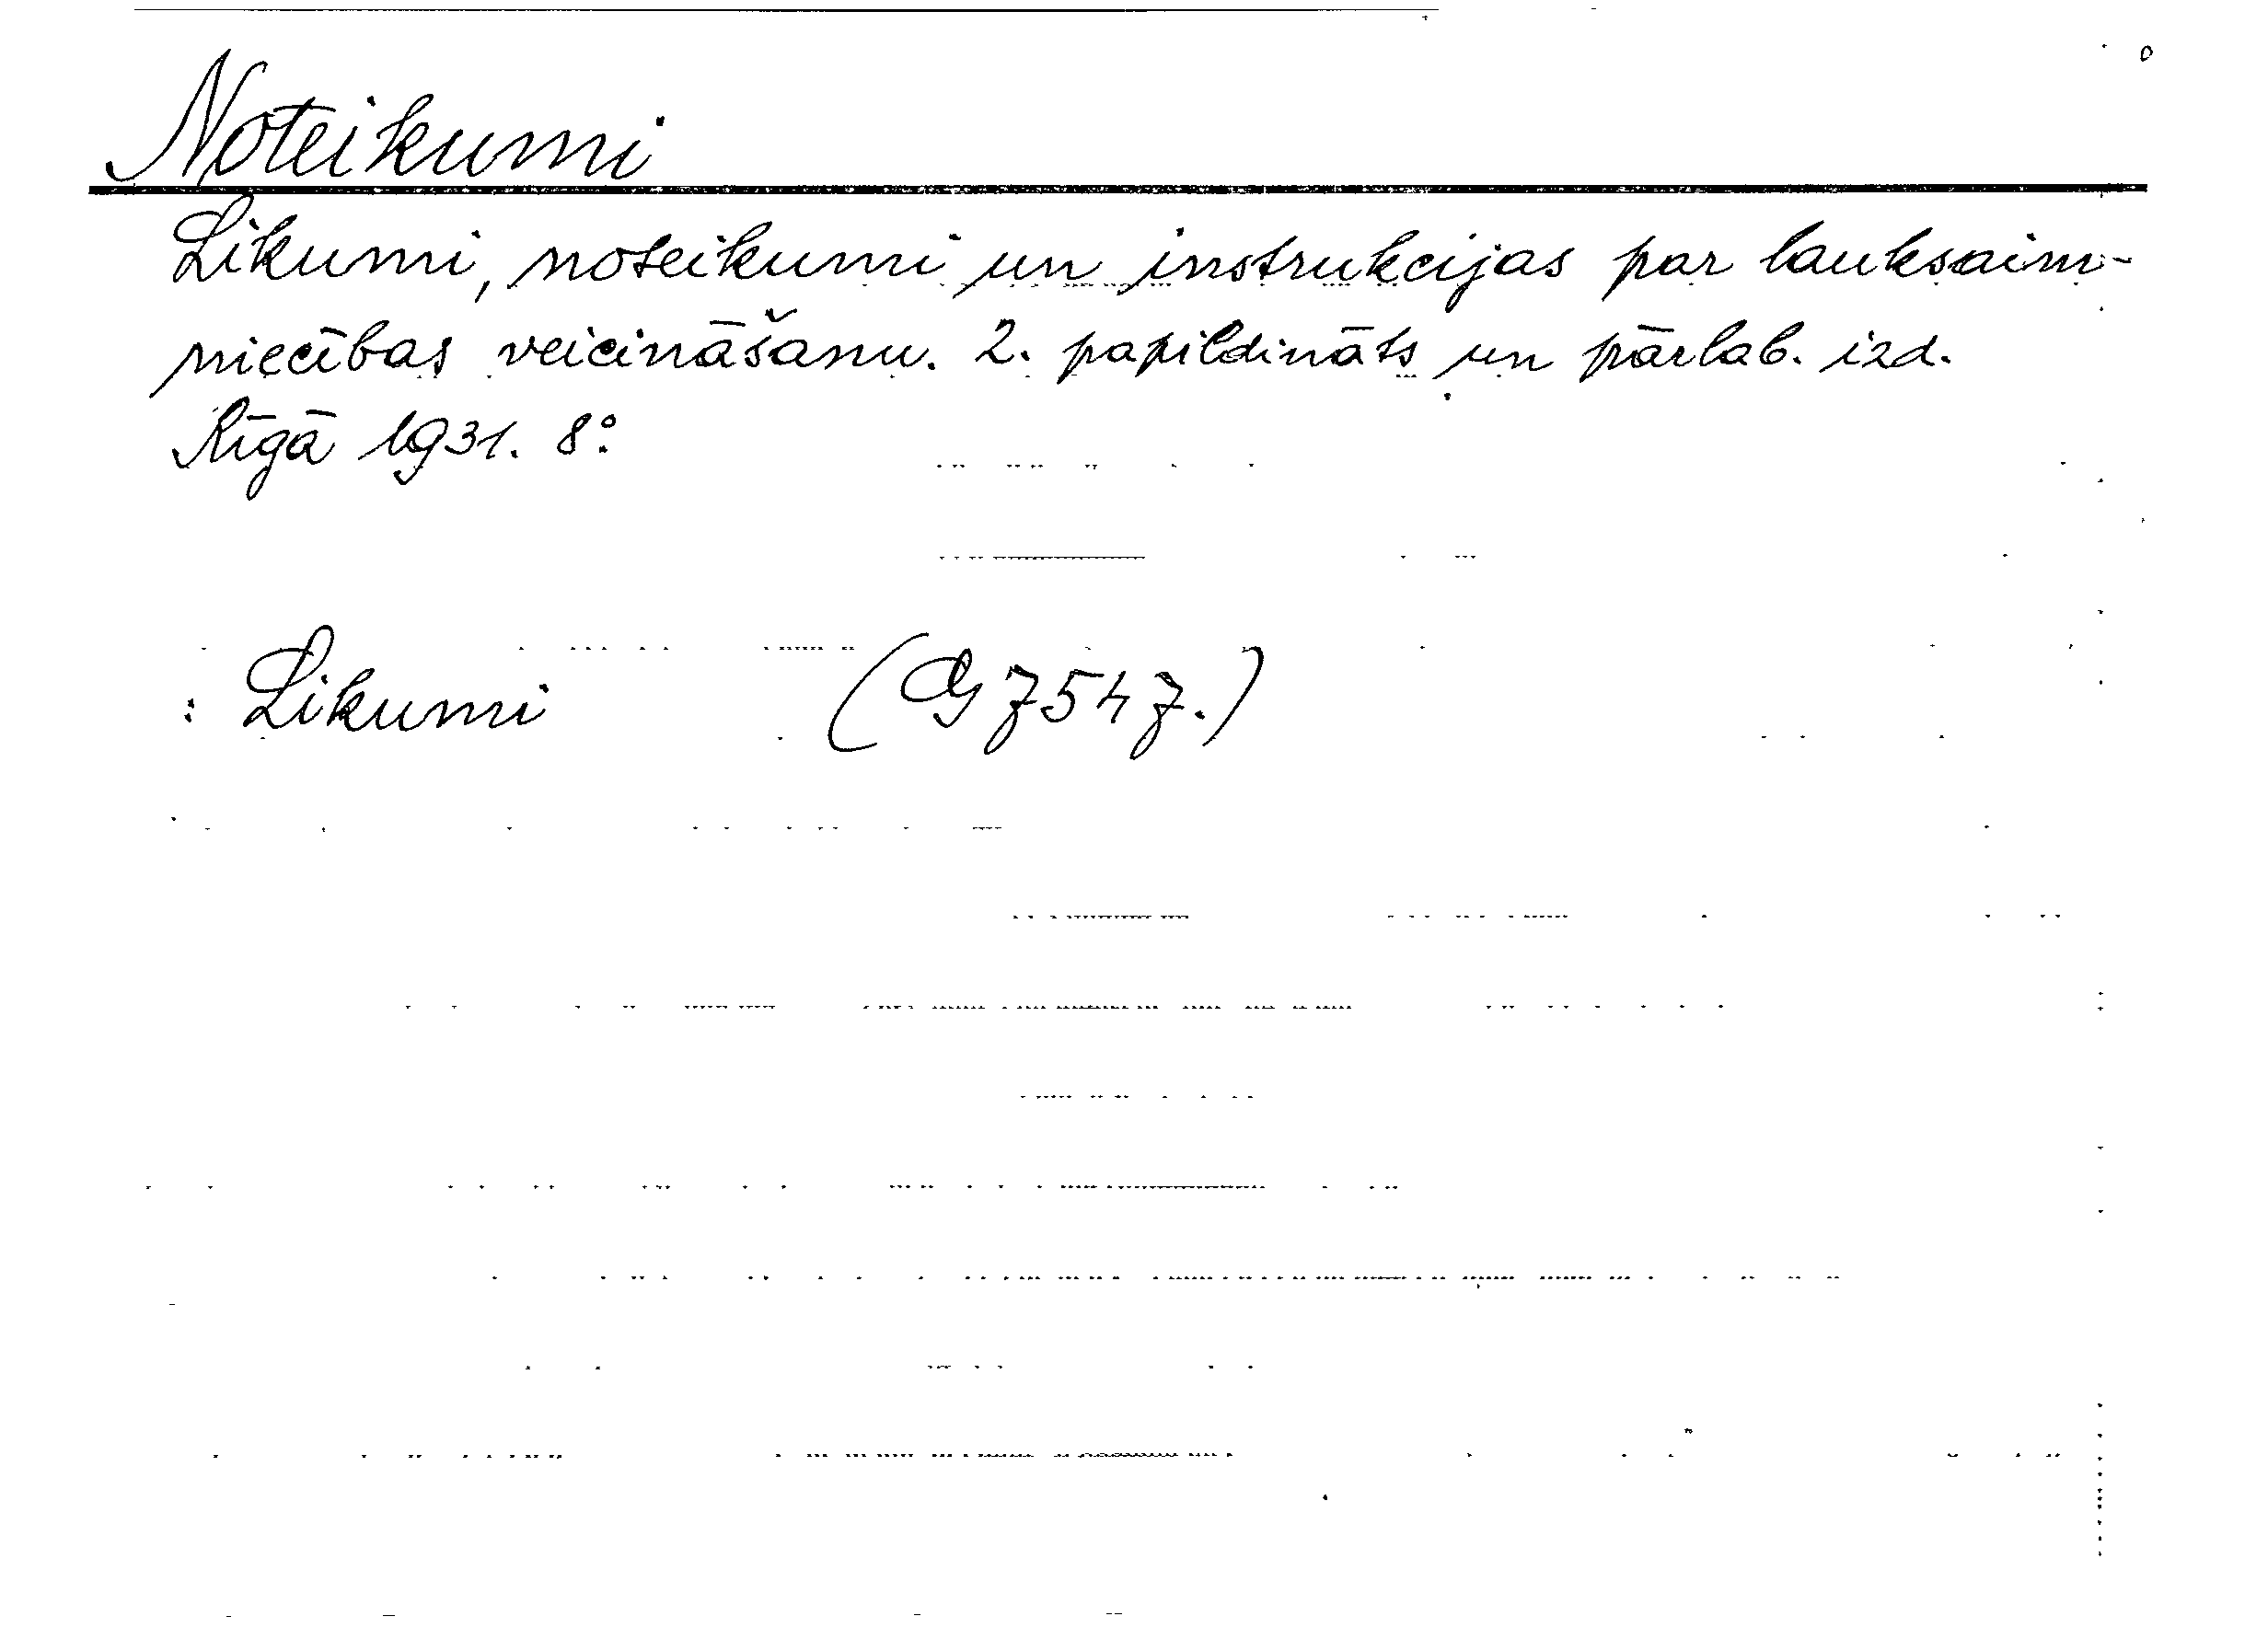 Noteikumi
Likumi, noteikumi un instrukcijas par lauksaim-
niecības veicināšanu. 2. papildināts un pārlab. izd.
Rīgā 1931. 8°.
: Likumi (G 7547.)